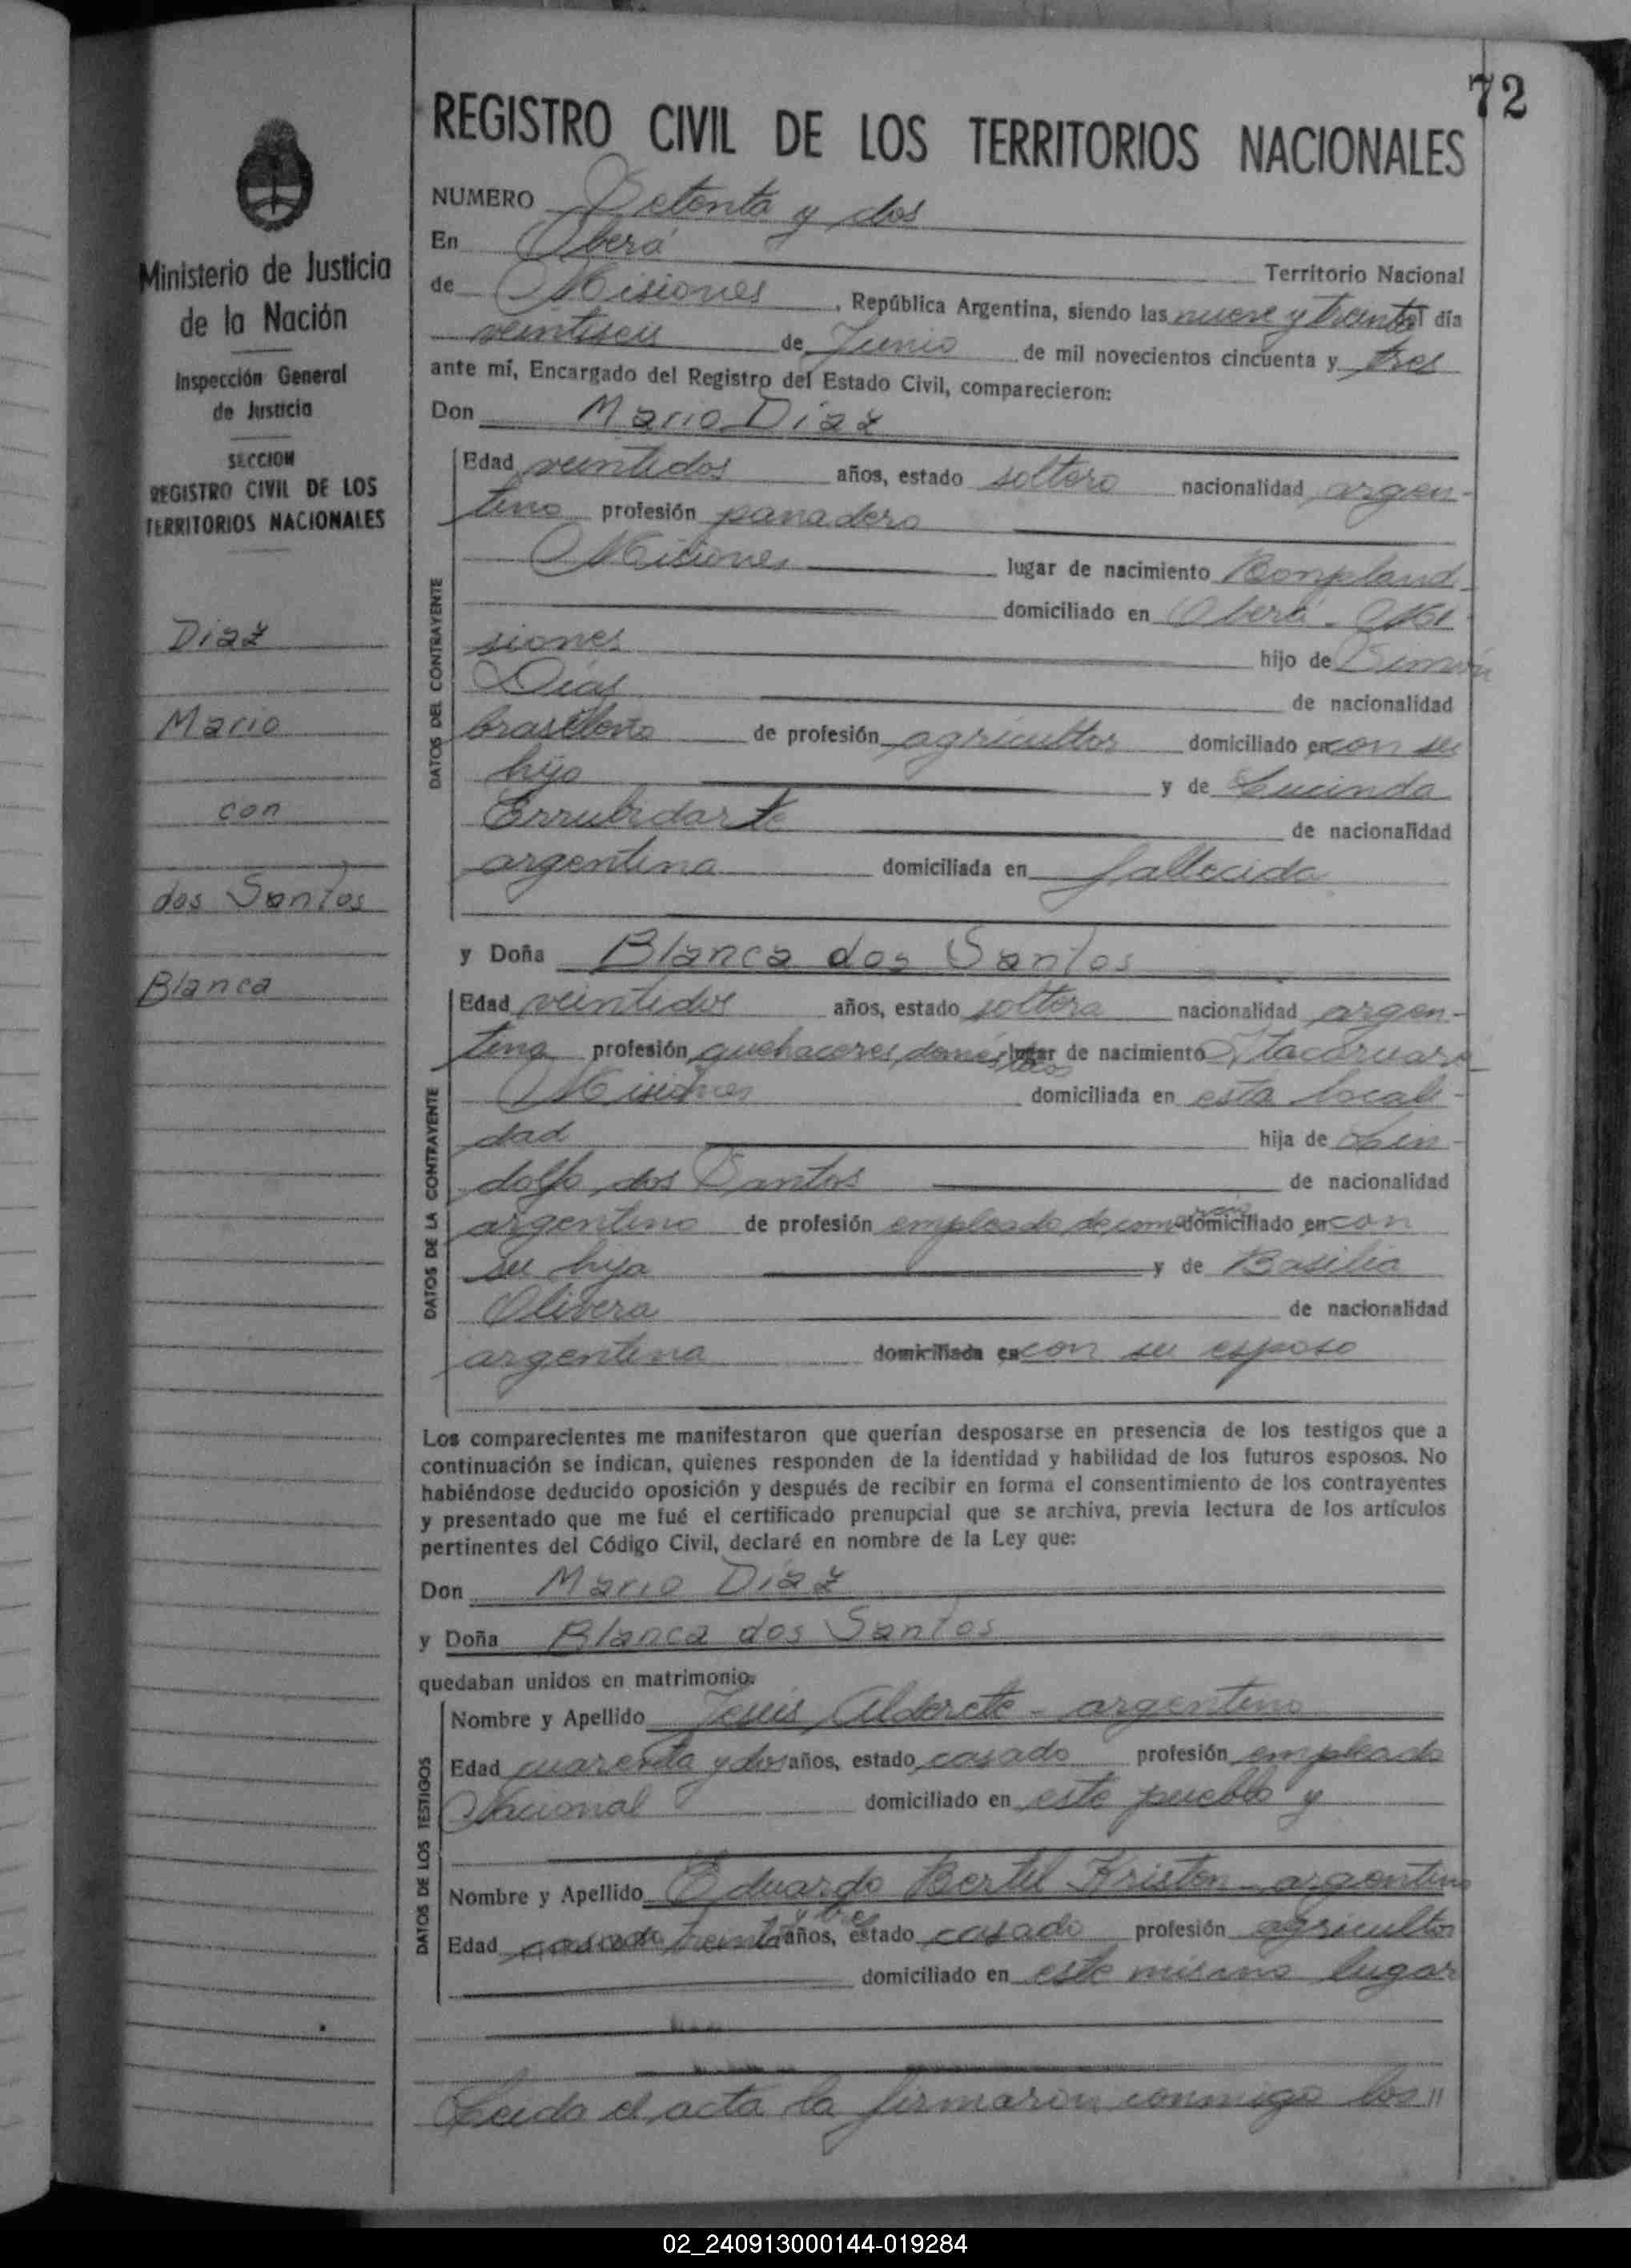 72
REGISTRO CIVIL DE LOS TERRITORIOS NACIONALES
Ministerio de Justicia
de la Nación
Inspección General
de Justicia
SECCION
REGISTRO CIVIL DE LOS
TERRITORIOS NACIONALES
Diaz
Mario
con
dos Santos
Blanca
NUMERO Setenta y dos
En Oberá
Territorio Nacional
de Misiones, República Argentina, siendo las nueve y treinta del día
veintiseis de Junio de mil novecientos cincuenta y tres
ante mí, Encargado del Registro del Estado Civil, comparecieron:
Don Mario Diaz
DATOS DEL CONTRAYENTE
Edad veintidos años, estado soltero nacionalidad argen-
tino profesión panadero
Misiones lugar de nacimiento Bonpland
domiciliado en Oberá - Mi
siones hijo de Simón
Dias de nacionalidad
brasileño de profesión agricultor domiciliado en con su
hijo y de Lucinda
Errubidarte de nacionalidad
argentina domiciliada en fallecida
y Doña Blanca dos Santos
DATOS DE LA CONTRAYENTE
Edad veintidos años, estado soltera nacionalidad argen-
tina profesión quehaceres domésticos lugar de nacimiento Itacaruaré
Misiones domiciliada en esta locali-
dad hija de Lin-
dolfo dos Santos de nacionalidad
argentino de profesión empleado de comercio domiciliado en con
su hija y de Basilia
Olivera de nacionalidad
argentina domiciliada en con su esposo
Los comparecientes me manifestaron que querían desposarse en presencia de los testigos que a
continuación se indican, quienes responden de la identidad y habilidad de los futuros esposos. No
habiéndose deducido oposición y después de recibir en forma el consentimiento de los contrayentes
y presentado que me fué el certificado prenupcial que se archiva, previa lectura de los artículos
pertinentes del Código Civil, declaré en nombre de la Ley que:
Don Mario Diaz
y Doña Blanca dos Santos
quedaban unidos en matrimonio.
DATOS DE LOS TESTIGOS
Nombre y Apellido Jesús Alderete - argentino
Edad cuarenta y dos años, estado casado profesión empleado
Nacional domiciliado en este pueblo y
Nombre y Apellido Eduardo Bertil Kristen - argentino
Edad treinta y tres años, estado casado profesión agricultor
domiciliado en este mismo lugar
Leida el acta la firmaron conmigo los "
02_240913000144-019284